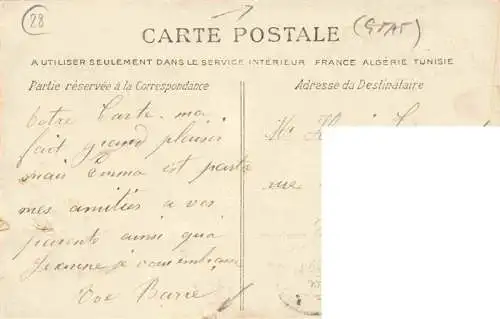 28
(GTAT)
CARTE POSTALE
A UTILISER SEULEMENT DANS LE SERVICE INTÉRIEUR FRANCE ALGÉRIE TUNISIE
Partie réservée à la Correspondance
Adresse du Destinataire
Votre Carte ma
fait grand plaisir
mais Emma est partie
mes amitiés a vos
parents ainsi qua
Jeanne je vous embrasse
Vve Barré
Mr
rue